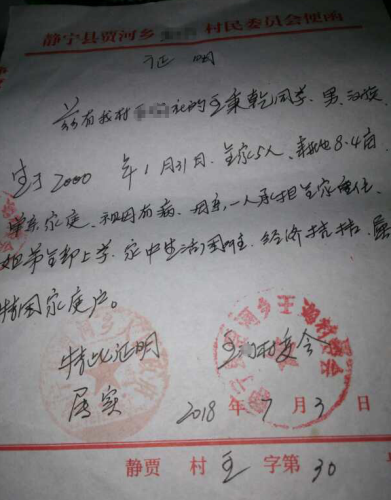 静宁县贾河乡 村民委员会便函
证 明
兹有我村 社的王秉乾同学、男、汉族
生于2000 年1月31日、全家5人、耕地8.4亩、
单亲家庭、祖母有病、母亲一人承担全家责任、
姐弟全部上学、家中生活困难、经济拮据、属
特困家庭户。
特此证明
属实
王 村委会
2018年7月3日
静贾 村 王 字第 30